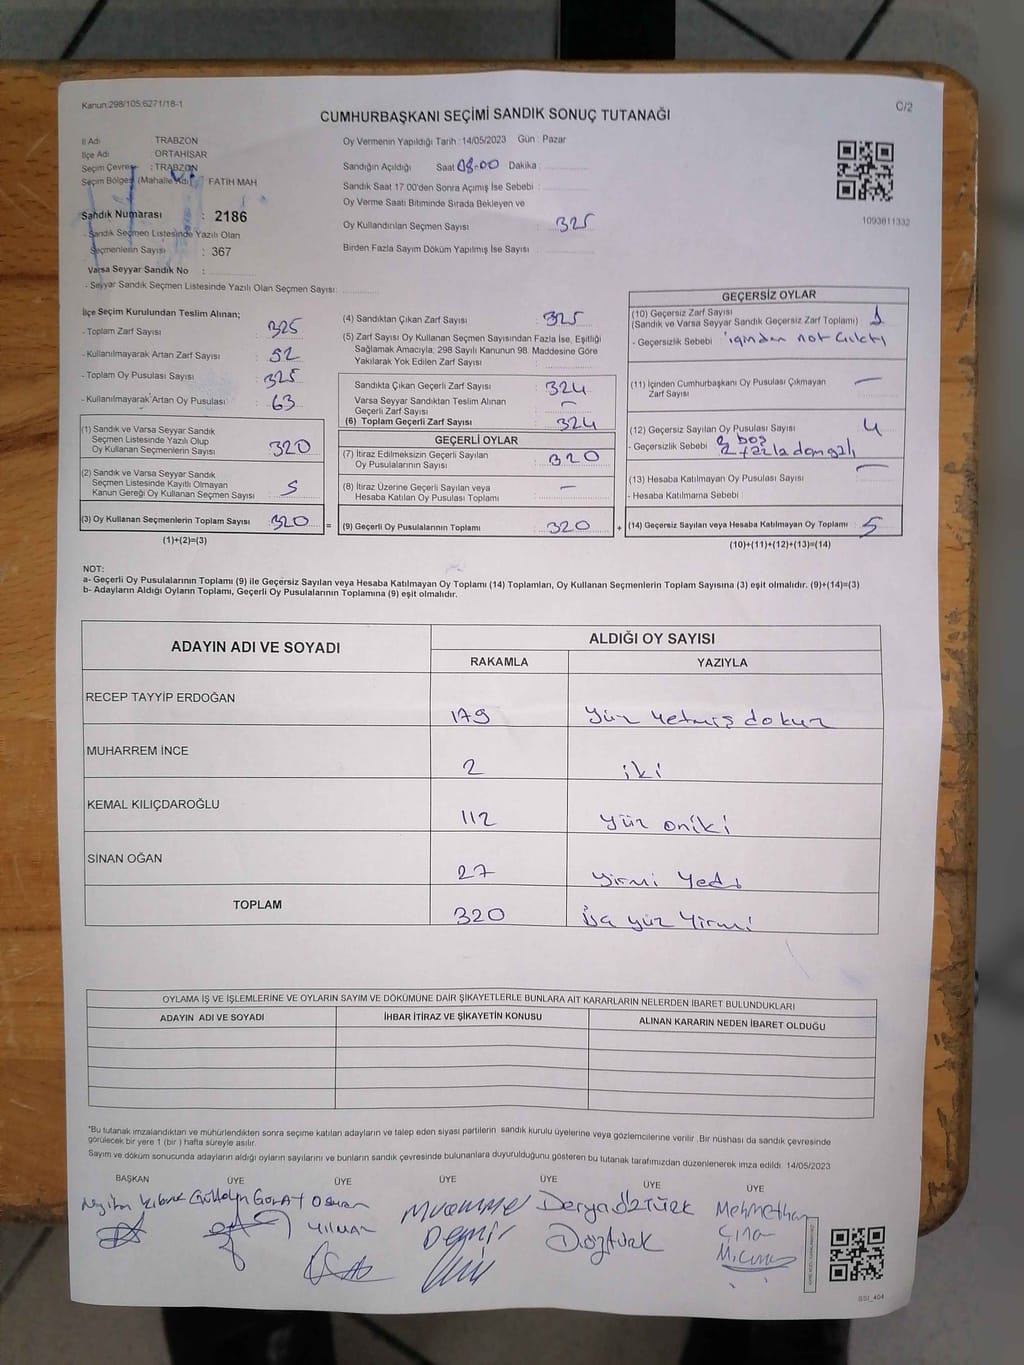 Kanun:298/105,6271/18-1
C/2
CUMHURBAŞKANI SEÇİMİ SANDIK SONUÇ TUTANAĞI
İl Adı TRABZON
İlçe Adı ORTAHİSAR
Seçim Çevresi : TRABZON
Seçim Bölgesi (Mahalle Adı) FATİH MAH
Sandık Numarası : 2186
- Sandık Seçmen Listesinde Yazılı Olan
Seçmenlerin Sayısı : 367
Varsa Seyyar Sandık No :
- Seyyar Sandık Seçmen Listesinde Yazılı Olan Seçmen Sayısı:
Oy Vermenin Yapıldığı Tarih :14/05/2023 Gün : Pazar
Sandığın Açıldığı Saat 08:00 Dakika :
Sandık Saat 17.00'den Sonra Açımış İse Sebebi :
Oy Verme Saati Bitiminde Sırada Bekleyen ve
Oy Kullandırılan Seçmen Sayısı : 325
Birden Fazla Sayım Döküm Yapılmış İse Sayısı :
1093811332
İlçe Seçim Kurulundan Teslim Alınan;
- Toplam Zarf Sayısı : 325
- Kullanılmayarak Artan Zarf Sayısı : 52
- Toplam Oy Pusulası Sayısı : 325
- Kullanılmayarak Artan Oy Pusulası : 63
(1) Sandık ve Varsa Seyyar Sandık
Seçmen Listesinde Yazılı Olup
Oy Kullanan Seçmenlerin Sayısı : 320
(2) Sandık ve Varsa Seyyar Sandık
Seçmen Listesinde Kayıtlı Olmayan
Kanun Gereği Oy Kullanan Seçmen Sayısı : 5
(3) Oy Kullanan Seçmenlerin Toplam Sayısı : 320
(1)+(2)=(3)
(4) Sandıktan Çıkan Zarf Sayısı : 325
(5) Zarf Sayısı Oy Kullanan Seçmen Sayısından Fazla İse, Eşitliği
Sağlamak Amacıyla, 298 Sayılı Kanunun 98. Maddesine Göre
Yakılarak Yok Edilen Zarf Sayısı :
Sandıkta Çıkan Geçerli Zarf Sayısı : 324
Varsa Seyyar Sandıktan Teslim Alınan
Geçerli Zarf Sayısı : –
(6) Toplam Geçerli Zarf Sayısı : 324
GEÇERLİ OYLAR
(7) İtiraz Edilmeksizin Geçerli Sayılan
Oy Pusulalarının Sayısı : 320
(8) İtiraz Üzerine Geçerli Sayılan veya
Hesaba Katılan Oy Pusulası Toplamı : –
= (9) Geçerli Oy Pusulalarının Toplamı : 320
GEÇERSİZ OYLAR
(10) Geçersiz Zarf Sayısı
(Sandık ve Varsa Seyyar Sandık Geçersiz Zarf Toplamı) : 1
- Geçersizlik Sebebi : içinden not çıktı
(11) İçinden Cumhurbaşkanı Oy Pusulası Çıkmayan
Zarf Sayısı : –
(12) Geçersiz Sayılan Oy Pusulası Sayısı : 4
- Geçersizlik Sebebi 2 boş
2 fazla damgalı
(13) Hesaba Katılmayan Oy Pusulası Sayısı : –
- Hesaba Katılmama Sebebi :
+ (14) Geçersiz Sayılan veya Hesaba Katılmayan Oy Toplamı : 5
(10)+(11)+(12)+(13)=(14)
NOT:
a- Geçerli Oy Pusulalarının Toplamı (9) ile Geçersiz Sayılan veya Hesaba Katılmayan Oy Toplamı (14) Toplamları, Oy Kullanan Seçmenlerin Toplam Sayısına (3) eşit olmalıdır. (9)+(14)=(3)
b- Adayların Aldığı Oyların Toplamı, Geçerli Oy Pusulalarının Toplamına (9) eşit olmalıdır.
ADAYIN ADI VE SOYADI
ALDIĞI OY SAYISI
RAKAMLA YAZIYLA
RECEP TAYYİP ERDOĞAN 179 yüz yetmiş dokuz
MUHARREM İNCE 2 iki
KEMAL KILIÇDAROĞLU 112 yüz oniki
SİNAN OĞAN 27 yirmi yedi
TOPLAM 320 yüz yirmi
OYLAMA İŞ VE İŞLEMLERİNE VE OYLARIN SAYIM VE DÖKÜMÜNE DAİR ŞİKAYETLERLE BUNLARA AİT KARARLARIN NELERDEN İBARET BULUNDUKLARI
ADAYIN ADI VE SOYADI İHBAR İTİRAZ VE ŞİKAYETİN KONUSU ALINAN KARARIN NEDEN İBARET OLDUĞU
"Bu tutanak imzalandıktan ve mühürlendikten sonra seçime katılan adayların ve talep eden siyasi partilerin sandık kurulu üyelerine veya gözlemcilerine verilir. Bir nüshası da sandık çevresinde
görülecek bir yere 1 (bir ) hafta süreyle asılır.
Sayım ve döküm sonucunda adayların aldığı oyların sayılarını ve bunların sandık çevresinde bulunanlara duyurulduğunu gösteren bu tutanak tarafımızdan düzenlenerek imza edildi. 14/05/2023
BAŞKAN ÜYE ÜYE ÜYE ÜYE ÜYE ÜYE
Osman Derya ÖZTÜRK Mehmethan
Yılmaz Demir DÖztürk Çına
SSI_404